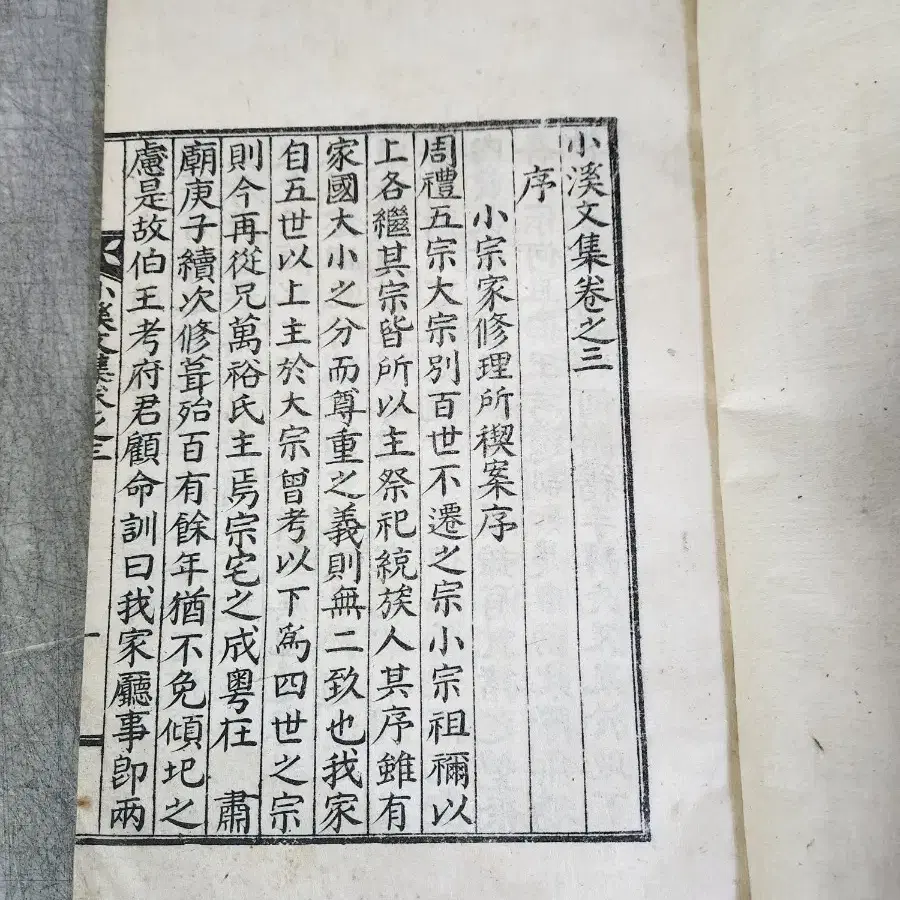 小溪文集卷之三
序
小宗家修理所稧案序
周禮五宗大宗別百世不遷之宗小宗祖禰以
上各繼其宗皆所以主祭祀統族人其序雖有
家國大小之分而尊重之義則無二致也我家
自五世以上主於大宗曾考以下爲四世之宗
則今再從兄萬裕氏主焉宗宅之成粤在 肅
廟庚子續次修葺殆百有餘年猶不免傾圮之
慮是故伯王考府君顧命訓曰我家廳事卽兩
小溪文集卷之三
一